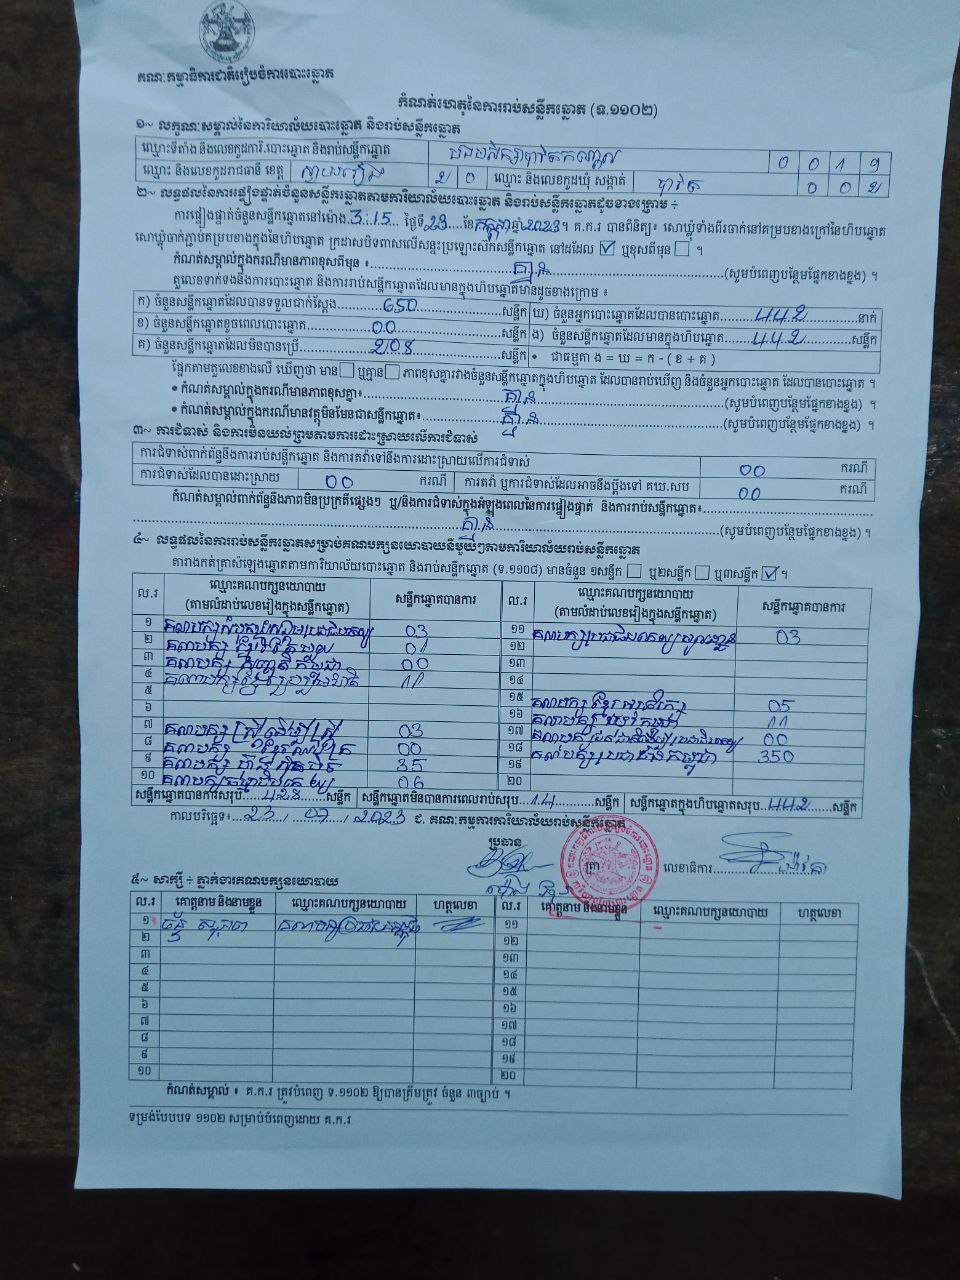 គណៈកម្មាធិការជាតិរៀបចំការបោះឆ្នោត
កំណត់ហេតុនៃការរាប់សន្លឹកឆ្នោត (ទ.១១០២)
១~ លក្ខណៈសម្គាល់នៃការិយាល័យបោះឆ្នោត និងរាប់សន្លឹកឆ្នោត
ឈ្មោះទីតាំង និងលេខកូដការិ.បោះឆ្នោត និងរាប់សន្លឹកឆ្នោត 0 0 1 9
ឈ្មោះ និងលេខកូដរាជធានី ខេត្ត ស្វាយរៀង 2 0 ឈ្មោះ និងលេខកូដឃុំ សង្កាត់ បាវិត 0 0 2
២~ លទ្ធផលនៃការផ្ទៀងផ្ទាត់ចំនួនសន្លឹកឆ្នោតតាមការិយាល័យបោះឆ្នោត និងរាប់សន្លឹកឆ្នោតដូចខាងក្រោម ÷
ការផ្ទៀងផ្ទាត់ចំនួនសន្លឹកឆ្នោតនៅម៉ោង 3:15 ថ្ងៃទី 23 ខែ កក្កដា ឆ្នាំ 2023 ។ គ.ក.រ បានពិនិត្យ៖ សោឃ្លុំទាំងពីរចាក់នៅគម្របខាងក្រៅនៃហិបឆ្នោត
សោឃ្លុំចាក់ភ្ជាប់គម្របខាងក្នុងនៃហិបឆ្នោត ក្រដាសបិទពាសលើសន្ទះប្រឡោះស៊កសន្លឹកឆ្នោត នៅដដែល ☑ ឬខុសពីមុន ☐ ។
កំណត់សម្គាល់ក្នុងករណីមានភាពខុសពីមុន ៖ គ្មាន (សូមបំពេញបន្ថែមផ្នែកខាងខ្នង) ។
តួលេខទាក់ទងនឹងការបោះឆ្នោត និងការរាប់សន្លឹកឆ្នោតដែលមានក្នុងហិបឆ្នោតមានដូចខាងក្រោម ៖
ក) ចំនួនសន្លឹកឆ្នោតដែលបានទទួលជាក់ស្តែង 650 សន្លឹក ឃ) ចំនួនអ្នកបោះឆ្នោតដែលបានបោះឆ្នោត 442 នាក់
ខ) ចំនួនសន្លឹកឆ្នោតខូចពេលបោះឆ្នោត 00 សន្លឹក ង) ចំនួនសន្លឹកឆ្នោតដែលមានក្នុងហិបឆ្នោត 442 សន្លឹក
គ) ចំនួនសន្លឹកឆ្នោតដែលមិនបានប្រើ 208 សន្លឹក • ជាធម្មតា ង = ឃ = ក - ( ខ + គ )
ផ្អែកតាមតួលេខខាងលើ ឃើញថា មាន ☐ ឬគ្មាន ☐ ភាពខុសគ្នារវាងចំនួនសន្លឹកឆ្នោតក្នុងហិបឆ្នោត ដែលបានរាប់ឃើញ និងចំនួនអ្នកបោះឆ្នោត ដែលបានបោះឆ្នោត ។
• កំណត់សម្គាល់ក្នុងករណីមានភាពខុសគ្នា៖ គ្មាន (សូមបំពេញបន្ថែមផ្នែកខាងខ្នង) ។
• កំណត់សម្គាល់ក្នុងករណីមានវត្ថុមិនមែនជាសន្លឹកឆ្នោត៖ គ្មាន (សូមបំពេញបន្ថែមផ្នែកខាងខ្នង) ។
៣~ ការជំទាស់ និងការមិនយល់ព្រមតាមការដោះស្រាយលើការជំទាស់
ការជំទាស់ពាក់ព័ន្ធនឹងការរាប់សន្លឹកឆ្នោត និងការតវ៉ាទៅនឹងការដោះស្រាយលើការជំទាស់ 00 ករណី
ការជំទាស់ដែលបានដោះស្រាយ 00 ករណី ការតវ៉ា ឬការជំទាស់ដែលអាចនឹងប្តឹងទៅ គឃ.សប 00 ករណី
កំណត់សម្គាល់ពាក់ព័ន្ធនឹងភាពមិនប្រក្រតីផ្សេងៗ ឬ/និងការជំទាស់ក្នុងអំឡុងពេលនៃការផ្ទៀងផ្ទាត់ និងការរាប់សន្លឹកឆ្នោត៖
គ្មាន (សូមបំពេញបន្ថែមផ្នែកខាងខ្នង) ។
៤~ លទ្ធផលនៃការរាប់សន្លឹកឆ្នោតសម្រាប់គណបក្សនយោបាយនីមួយៗតាមការិយាល័យរាប់សន្លឹកឆ្នោត
តារាងកត់ត្រាសំឡេងឆ្នោតតាមការិយាល័យបោះឆ្នោត និងរាប់សន្លឹកឆ្នោត (ទ.១១០៨) មានចំនួន ១សន្លឹក ☐ ឬ២សន្លឹក ☐ ឬ៣សន្លឹក ☑ ។
ល.រ ឈ្មោះគណបក្សនយោបាយ (តាមលំដាប់លេខរៀងក្នុងសន្លឹកឆ្នោត) សន្លឹកឆ្នោតបានការ ល.រ ឈ្មោះគណបក្សនយោបាយ (តាមលំដាប់លេខរៀងក្នុងសន្លឹកឆ្នោត) សន្លឹកឆ្នោតបានការ
១ គណបក្ស 03 ១១ គណបក្ស 03
២ គណបក្ស 01 ១២
៣ គណបក្ស 00 ១៣
៤ គណបក្ស 11 ១៤
៥ ១៥ គណបក្ស ខ្មែរ 05
៦ ១៦ គណបក្ស 11
៧ គណបក្ស ស្រីដើម្បីស្រី 03 ១៧ គណបក្ស 00
៨ គណបក្ស 00 ១៨ គណបក្សប្រជាជនកម្ពុជា 350
៩ គណបក្ស 35 ១៩
១០ គណបក្ស 06 ២០
សន្លឹកឆ្នោតបានការសរុប 428 សន្លឹក សន្លឹកឆ្នោតមិនបានការពេលរាប់សរុប 14 សន្លឹក សន្លឹកឆ្នោតក្នុងហិបឆ្នោតសរុប 442 សន្លឹក
កាលបរិច្ឆេទ៖ 23 / 07 / 2023 ជ. គណៈកម្មការការិយាល័យរាប់សន្លឹកឆ្នោត
ប្រធាន
ត្រា
លេខាធិការ
៥~ សាក្សី ÷ ភ្នាក់ងារគណបក្សនយោបាយ
ល.រ គោត្តនាម និងនាមខ្លួន ឈ្មោះគណបក្សនយោបាយ ហត្ថលេខា ល.រ គោត្តនាម និងនាមខ្លួន ឈ្មោះគណបក្សនយោបាយ ហត្ថលេខា
១ ១១
២ ១២
៣ ១៣
៤ ១៤
៥ ១៥
៦ ១៦
៧ ១៧
៨ ១៨
៩ ១៩
១០ ២០
កំណត់សម្គាល់ ៖ គ.ក.រ ត្រូវបំពេញ ទ.១១០២ ឱ្យបានត្រឹមត្រូវ ចំនួន ៣ច្បាប់ ។
ទម្រង់បែបបទ ១១០២ សម្រាប់បំពេញដោយ គ.ក.រ